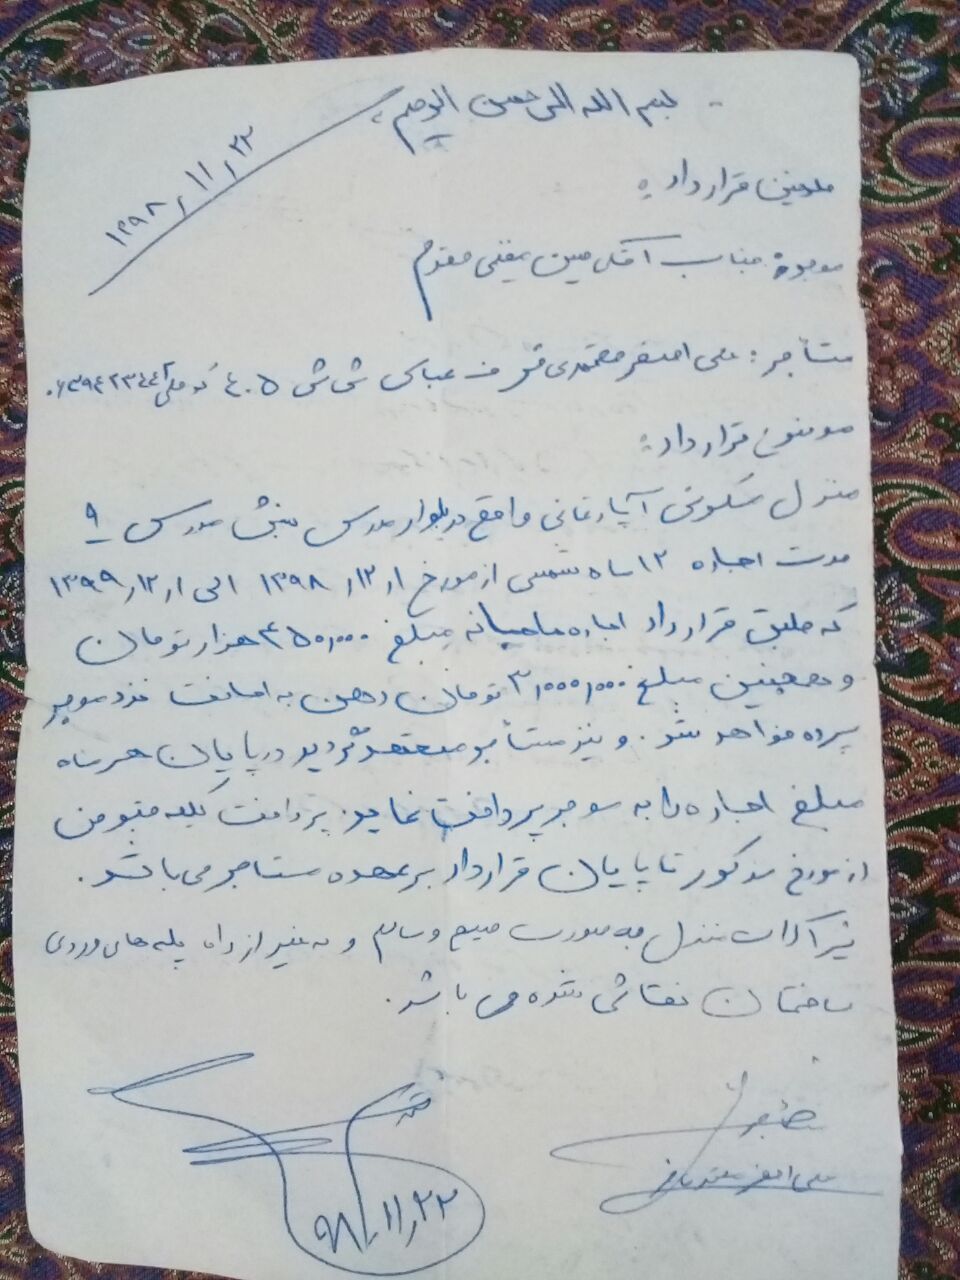 بسم الله الرحمن الرحیم
۱۳۹۸/۱۱/۲۲
طرفین قرارداد:
موجر: جناب آقای مقدم
مستأجر: علی اصغر محمدی فر ف عباس ش ش ۴۰۵ کد ملی
موضوع قرارداد:
منزل مسکونی آپارتمانی واقع در بلوار مدرس نبش مدرس ۹
مدت اجاره ۱۲ ماه شمسی از مورخ ۱۳۹۸/۱۲/۱ الی ۱۳۹۹/۱۲/۱
که طبق قرارداد اجاره ماهیانه مبلغ ۴۵۰,۰۰۰ هزار تومان
و همچنین مبلغ ۳,۰۰۰,۰۰۰ تومان رهن به امانت نزد موجر
سپرده خواهد شد. و نیز مستأجر متعهد گردید در پایان هر ماه
مبلغ اجاره را به موجر پرداخت نماید. پرداخت کلیه قبوض
از مورخ مذکور تا پایان قرارداد بر عهده مستاجر می باشد.
منزل به صورت صحیح و سالم و به غیر از راه پله های ورودی
ساختمان نقاشی شده می باشد.
علی اصغر
۹۸/۱۱/۲۲